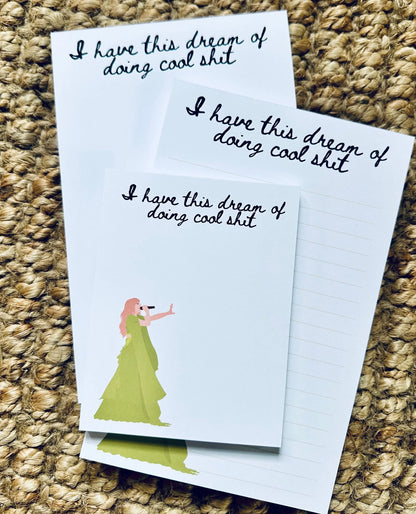 I have this dream of
doing cool shit
I have this dream of
doing cool shit
I have this dream of
doing cool shit